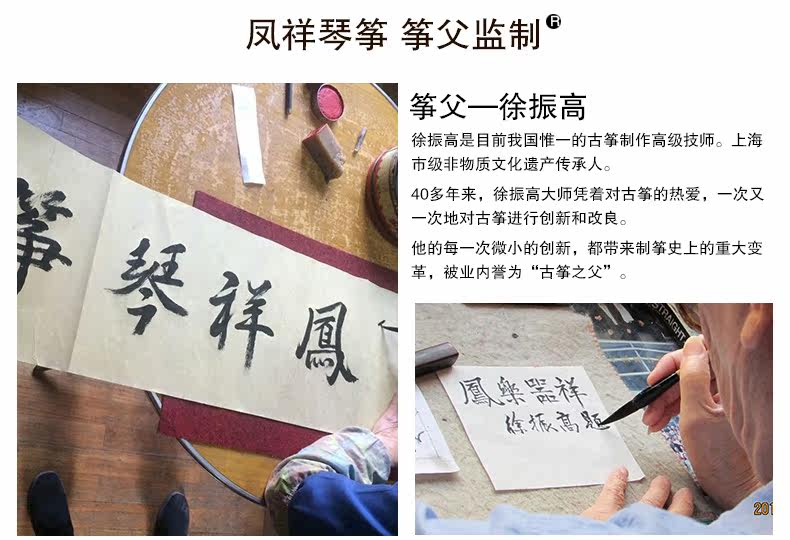 凤祥琴筝 筝父监制®
筝父—徐振高
徐振高是目前我国惟一的古筝制作高级技师。上海
市级非物质文化遗产传承人。
40多年来，徐振高大师凭着对古筝的热爱，一次又
一次地对古筝进行创新和改良。
他的每一次微小的创新，都带来制筝史上的重大变
革，被业内誉为“古筝之父”。
筝琴祥鳳
STRAIGHT
鳳樂器祥
徐振高題
201